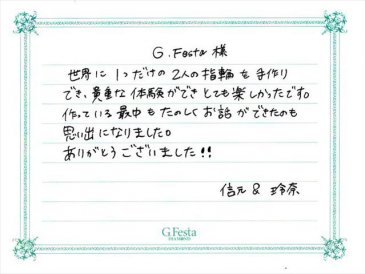 G.Festa 様
世界に1つだけの2人の指輪を手作り
でき、貴重な体験ができとても楽しかったです。
作っている最中もたのしくお話ができたのも
思い出になりました。
ありがとうございました!!
信元 & 玲奈
G.Festa
DIAMOND